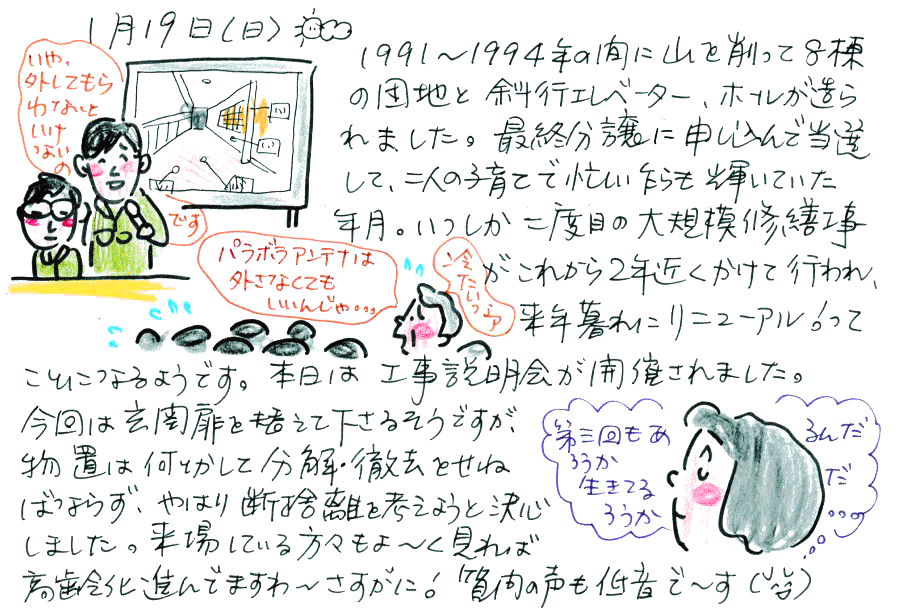 1月19日(日)
いや、
外してもら
わないと
いけ
ないの
です
パラボラアンテナは
外さなくても
いいんじゃ。。。
冷
たいっ
1991〜1994年の間に山を削って8棟
の団地と斜行エレベーター、ホールが造ら
れました。最終分譲に申し込んで当選
して、二人の子育てで忙しい乍らも輝いていた
年月。いつしか二度目の大規模修繕工事
がこれから2年近くかけて行われ、
来年暮れにリニューアル!って
ことになるようです。本日は工事説明会が開催されました。
今回は玄関扉を替えて下さるそうですが、
物置は何とかして分解・撤去をせね
ばならず、やはり断捨離を考えようと決心
しました。来場している方々もよ〜く見れば
高齢化進んでますわ〜さすがに!質問の声も低音で〜す(笑)
第三回もあ
ろうか
生きてる
ろうか
るんだ
だ
。。。